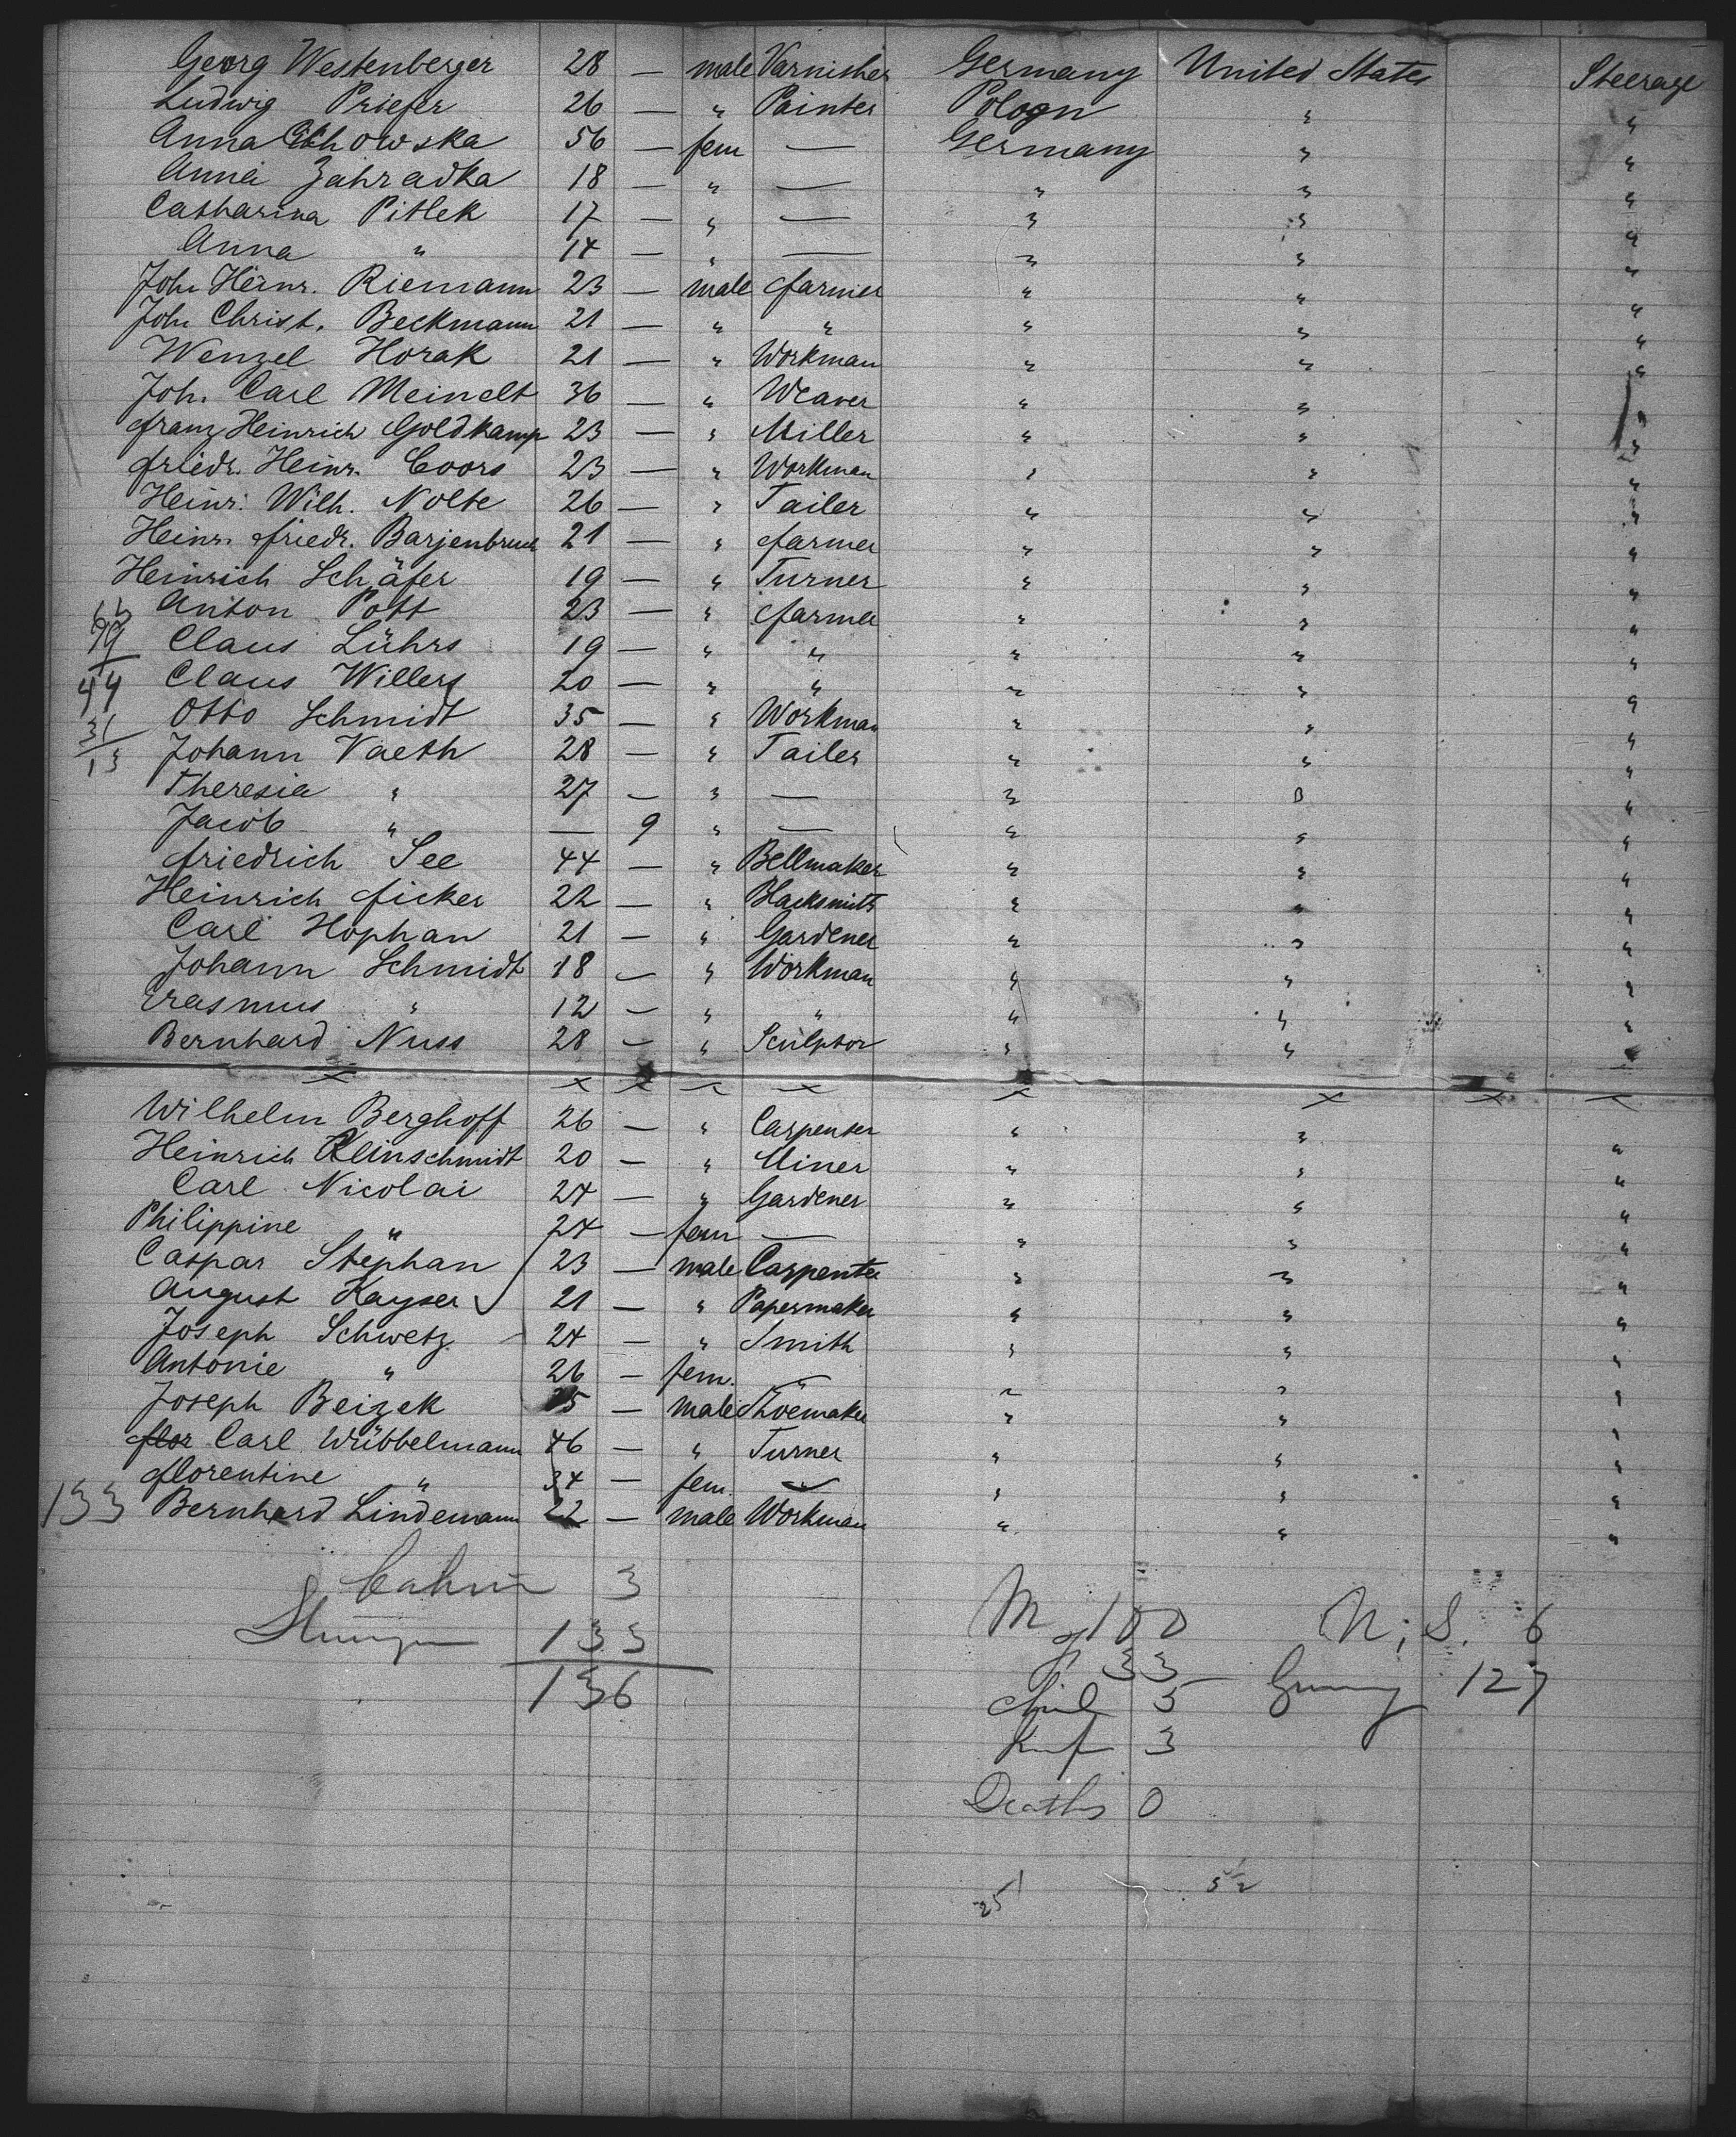 Georg Westenberger 28 — male Varnisher Germany United States Steerage
Ludwig Priefer 26 — " Painter Pologn " "
Anna Chowska 56 — fem — Germany " "
Anna Zahradka 18 — " — " " "
Catharina Pitlek 17 — " — " " "
Anna " 14 — " — " " "
Joh. Heinr. Riemann 23 — male farmer " " "
Joh. Christ. Beckmann 21 — " " " " "
Wenzel Horak 21 — " Workman " " "
Joh. Carl Meinelt 36 — " Weaver " " "
Franz Heinrich Goldkamp 23 — " Miller " " "
Friedr. Heinr. Coors 23 — " Workman " " "
Heinr. Wilh. Nolte 26 — " Tailer " " "
Heinr. Friedr. Barjenbruch 21 — " farmer " " "
Heinrich Schäfer 19 — " Turner " " "
Anton Pott 23 — " farmer " " "
Claus Lührs 19 — " " " " "
44 Claus Willers 20 — " " " " "
31 Otto Schmidt 35 — " Workman " " "
13 Johann Vaeth 28 — " Tailer " " "
Theresia " 27 — " — " " "
Jacob " — 9 " — " " "
Friedrich See 44 — " Bellmaker " " "
Heinrich Ficker 22 — " Blacksmith " " "
Carl Hophan 21 — " Gardener " " "
Johann Schmidt 18 — " Workman " " "
Erasmus " 12 — " " " " "
Bernhard Nuss 28 — " Sculptor " " "
Wilhelm Berghoff 26 — " Carpenter " " "
Heinrich Kleinschmidt 20 — " Miner " " "
Carl Nicolai 24 — " Gardener " " "
Philippine " 24 — fem — " " "
Caspar Stephan 23 — male Carpenter " " "
August Kayser 21 — " Papermaker " " "
Joseph Schwetz 24 — " Smith " " "
Antonie " 26 — fem. — " " "
Joseph Beizek 25 — male Shoemaker " " "
flor Carl Wübbelmann 46 — " Turner " " "
Florentine " 34 — fem. — " " "
133 Bernhard Lindemann 22 — male Workman " " "
Cabin 3
133
136
M 100 N; S. 6
f 33 127
Chil 5
Inf 3
Deaths 0
25